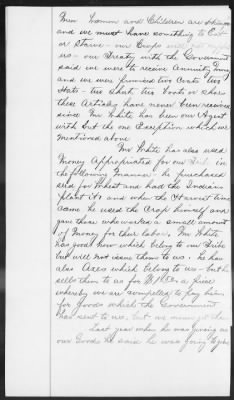 Men Women and Children are
and we must have something to Eat
or Starve - our Crops
us - our Treaty with the Government
said we were to receive Annuity
and we were promised two Coats two
Hats - two Shirts two Vests or
these Articles have never been received
since Mr White has been our Agent
with but the one Exception which we
mentioned above
Mr White has also used
Money Appropriated for our
the following Manner - he purchased
seed for Wheat and had the Indians
plant it, and when the Harvest time
came he used the Crop himself and
gave those who worked a small amount
of Money for their labor, Mr White
has goods now which belong to our Tribe
but will not issue them to us. he has
also Axes which belong to us - but he
sells them to us for a price
whereby we are compelled to pay him
for Goods which the Government
has sent to us, but we never get
Last year when he was giving us
our Goods he said he was going to